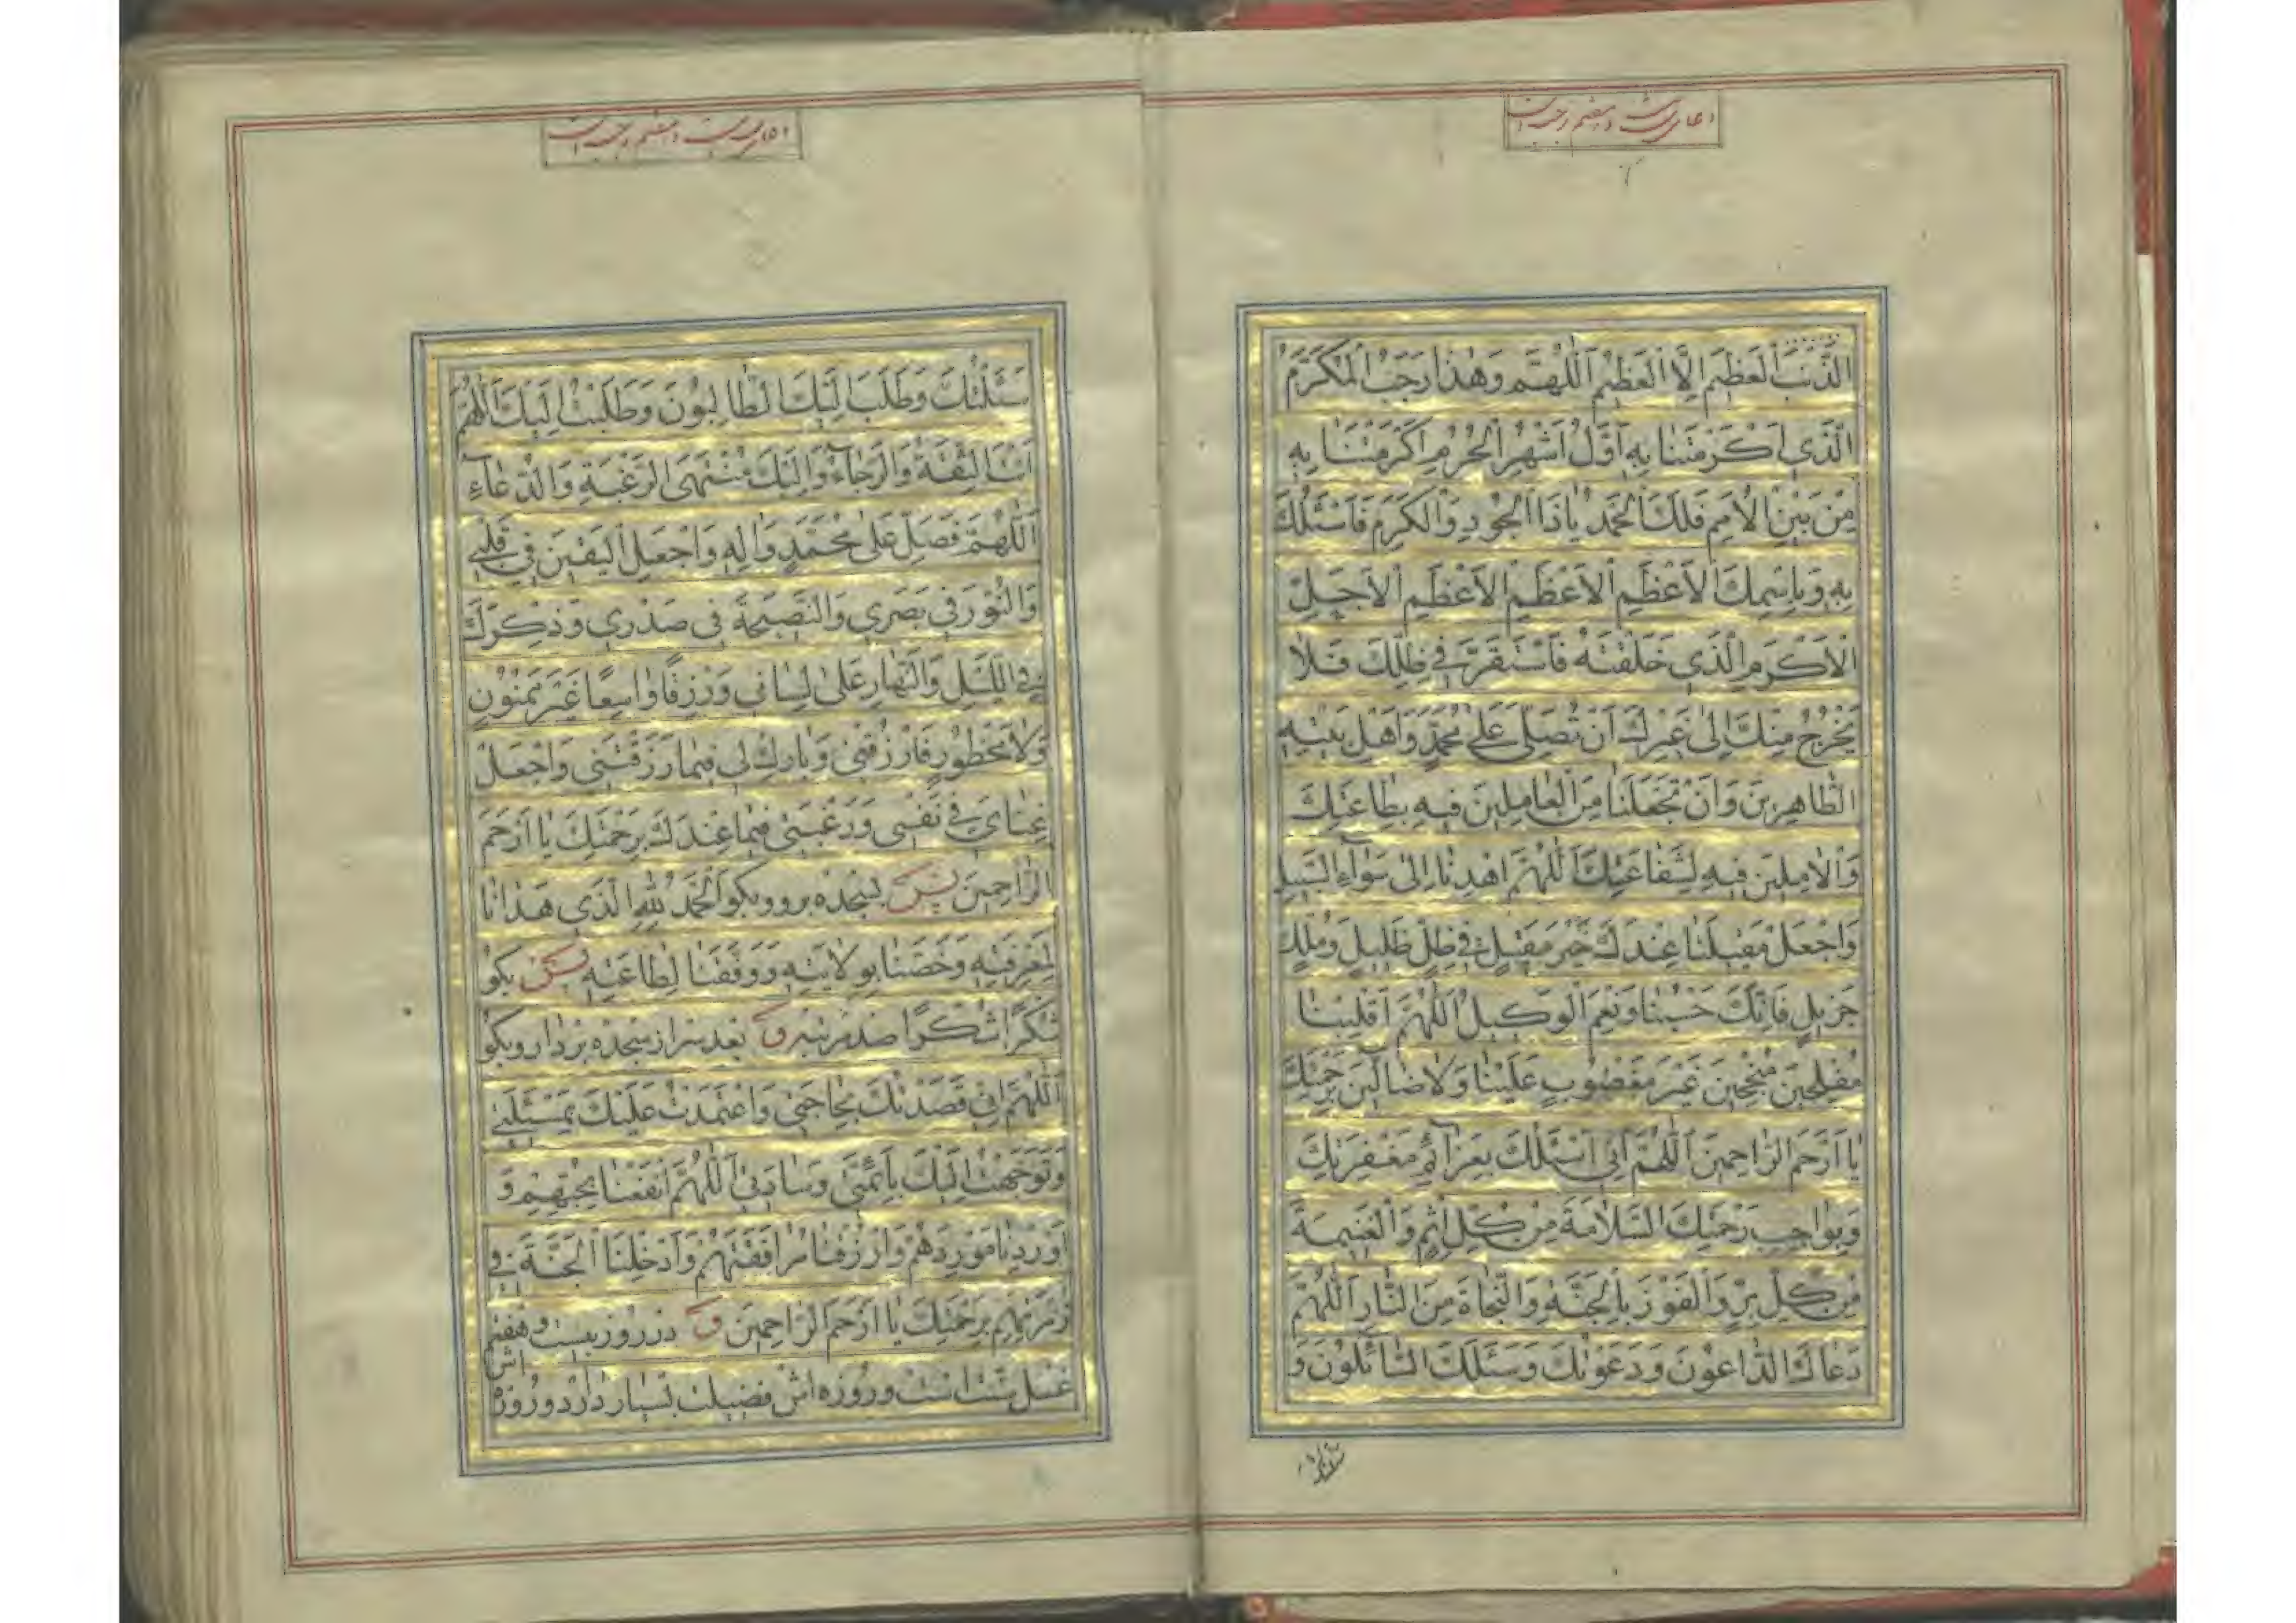 دعای بیست و هفتم رجب است
الذَّنْبَ الْعَظِيمَ اِلَّا الْعَظِيمُ اَللّٰهُمَّ وَهٰذَا رَجَبُ الْمُكَرَّمُ
الَّذِي اَكْرَمْتَنَا بِهِ اَوَّلُ اَشْهُرِ الْحُرُمِ اَكْرَمْتَنَا بِهِ
مِنْ بَيْنِ الْاُمَمِ فَلَكَ الْحَمْدُ يَا ذَا الْجُودِ وَالْكَرَمِ فَاَسْئَلُكَ
بِهِ وَبِاسْمِكَ الْاَعْظَمِ الْاَعْظَمِ الْاَعْظَمِ الْاَجَلِّ
الْاَكْرَمِ الَّذِي خَلَقْتَهُ فَاسْتَقَرَّ فِي ظِلِّكَ فَلَا
يَخْرُجُ مِنْكَ اِلٰى غَيْرِكَ اَنْ تُصَلِّيَ عَلٰى مُحَمَّدٍ وَاَهْلِ بَيْتِهِ
الطَّاهِرِينَ وَاَنْ تَجْعَلَنَا مِنَ الْعَامِلِينَ فِيهِ بِطَاعَتِكَ
وَالْاٰمِلِينَ فِيهِ لِشَفَاعَتِكَ اَللّٰهُمَّ اهْدِنَا اِلٰى سَوَاءِ السَّبِيلِ
وَاجْعَلْ مَقِيلَنَا عِنْدَكَ خَيْرَ مَقِيلٍ فِي ظِلٍّ ظَلِيلٍ وَمُلْكٍ
جَزِيلٍ فَاِنَّكَ حَسْبُنَا وَنِعْمَ الْوَكِيلُ اَللّٰهُمَّ اَقْلِبْنَا
مُفْلِحِينَ مُنْجِحِينَ غَيْرَ مَغْضُوبٍ عَلَيْنَا وَلَا ضَالِّينَ بِرَحْمَتِكَ
يَا اَرْحَمَ الرَّاحِمِينَ اَللّٰهُمَّ اِنِّي اَسْئَلُكَ بِعَزَائِمِ مَغْفِرَتِكَ
وَبِوَاجِبِ رَحْمَتِكَ السَّلَامَةَ مِنْ كُلِّ اِثْمٍ وَالْغَنِيمَةَ
مِنْ كُلِّ بِرٍّ وَالْفَوْزَ بِالْجَنَّةِ وَالنَّجَاةَ مِنَ النَّارِ اَللّٰهُمَّ
دَعَاكَ الدَّاعُونَ وَدَعَوْتُكَ وَسَئَلَكَ السَّائِلُونَ وَ
سئلتك
دعای بیست و هفتم رجب است
سَئَلْتُكَ وَطَلَبَ اِلَيْكَ الطَّالِبُونَ وَطَلَبْتُ اِلَيْكَ اَللّٰهُمَّ
اَنْتَ الثِّقَةُ وَالرَّجَاءُ وَاِلَيْكَ مُنْتَهَى الرَّغْبَةِ وَالدُّعَاءِ
اَللّٰهُمَّ فَصَلِّ عَلٰى مُحَمَّدٍ وَاٰلِهِ وَاجْعَلِ الْيَقِينَ فِي قَلْبِي
وَالنُّورَ فِي بَصَرِي وَالنَّصِيحَةَ فِي صَدْرِي وَذِكْرَكَ
فِي اللَّيْلِ وَالنَّهَارِ عَلٰى لِسَانِي وَرِزْقًا وَاسِعًا غَيْرَ مَمْنُونٍ
وَلَا مَحْظُورٍ فَارْزُقْنِي وَبَارِكْ لِي فِيمَا رَزَقْتَنِي وَاجْعَلْ
غِنَايَ فِي نَفْسِي وَرَغْبَتِي فِيمَا عِنْدَكَ بِرَحْمَتِكَ يَا اَرْحَمَ
الرَّاحِمِينَ پس بسجده برو وبكو اَلْحَمْدُ لِلّٰهِ الَّذِي هَدَانَا
لِمَعْرِفَتِهِ وَخَصَّنَا بِوِلَايَتِهِ وَوَفَّقَنَا لِطَاعَتِهِ پس بكو
شُكْرًا شُكْرًا صد مرتبه ق بعد سر از سجده بردار وبكو
اَللّٰهُمَّ اِنِّي قَصَدْتُكَ بِحَاجَتِي وَاعْتَمَدْتُ عَلَيْكَ بِمَسْئَلَتِي
وَتَوَجَّهْتُ اِلَيْكَ بِاَئِمَّتِي وَسَادَتِي اَللّٰهُمَّ انْفَعْنَا بِحُبِّهِمْ وَ
اَوْرِدْنَا مَوْرِدَهُمْ وَارْزُقْنَا مُرَافَقَتَهُمْ وَاَدْخِلْنَا الْجَنَّةَ فِي
زُمْرَتِهِمْ بِرَحْمَتِكَ يَا اَرْحَمَ الرَّاحِمِينَ ق در روز بیست و هفتم
غسل سنت است وروزه اش فضیلت بسیار دارد وروزه
اش